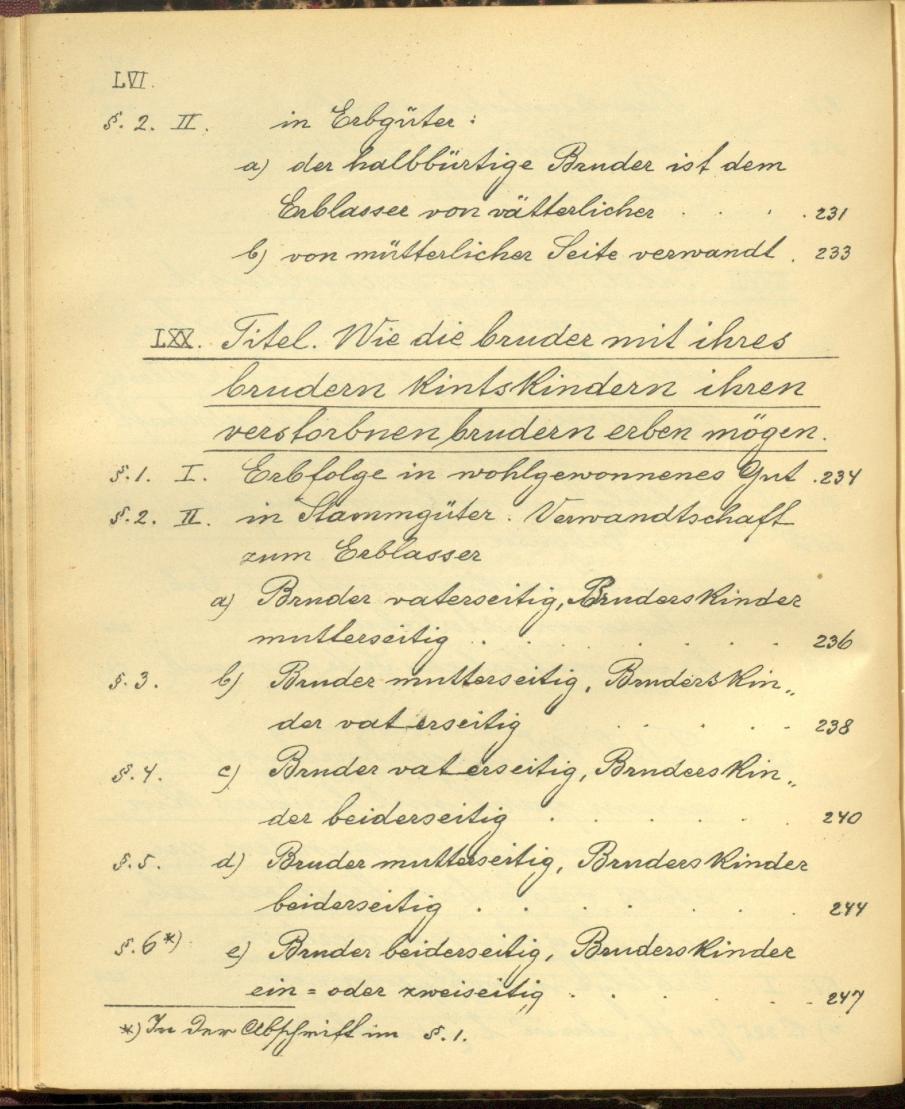 LVI.
§. 2. II. in Erbgüter:
a) der halbbürtige Bruder ist dem
Erblasser von vätterlicher . . . . 231
b) von mütterlicher Seite verwandt . 233
LXX. Titel. Wie die bruder mit ihres
brudern kintskindern ihren
verstorbnen brudern erben mögen.
§. 1. I. Erbfolge in wohlgewonnenes Gut . 234
§. 2. II. in Stammgüter. Verwandtschaft
zum Erblasser
a) Bruder vaterseitig, Bruderskinder
mutterseitig . . . . . . . 236
§. 3. b) Bruder mutterseitig, Bruderskin„
der vaterseitig . . . . . 238
§. 4. c) Bruder vaterseitig, Bruderskin„
der beiderseitig . . . . . . 240
§. 5. d) Bruder mutterseitig, Bruderskinder
beiderseitig . . . . . . . 244
§. 6*) e) Bruder beiderseitig, Bruderskinder
ein = oder zweiseitig . . . . . . 247
*) In der Abschrift im §. 1.